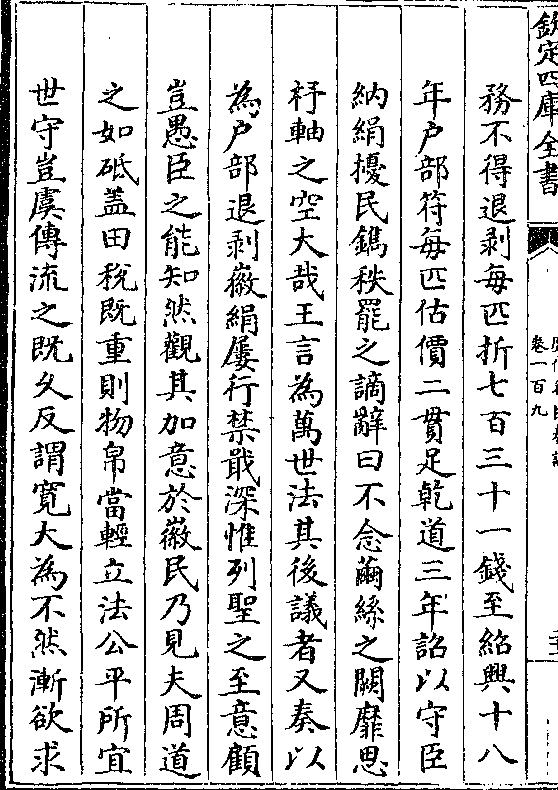 欽定四庫全書
卷一百九
務不得退剥每匹折七百三十一錢至紹興十八
年户部符每匹估價二貫足乾道三年詔以守臣
納絹擾民鐫秩罷之謫辭曰不念繭絲之闕靡思
杼軸之空大哉王言為萬世法其後議者又奏以
為户部退剥徽絹屢行禁戢深惟列聖之至意顧
豈愚臣之能知然觀其加意於徽民乃見夫周道
之如砥盖田稅既重則物帛當輕立法公平所宜
世守豈虞傳流之既久反謂寛大為不然漸欲求